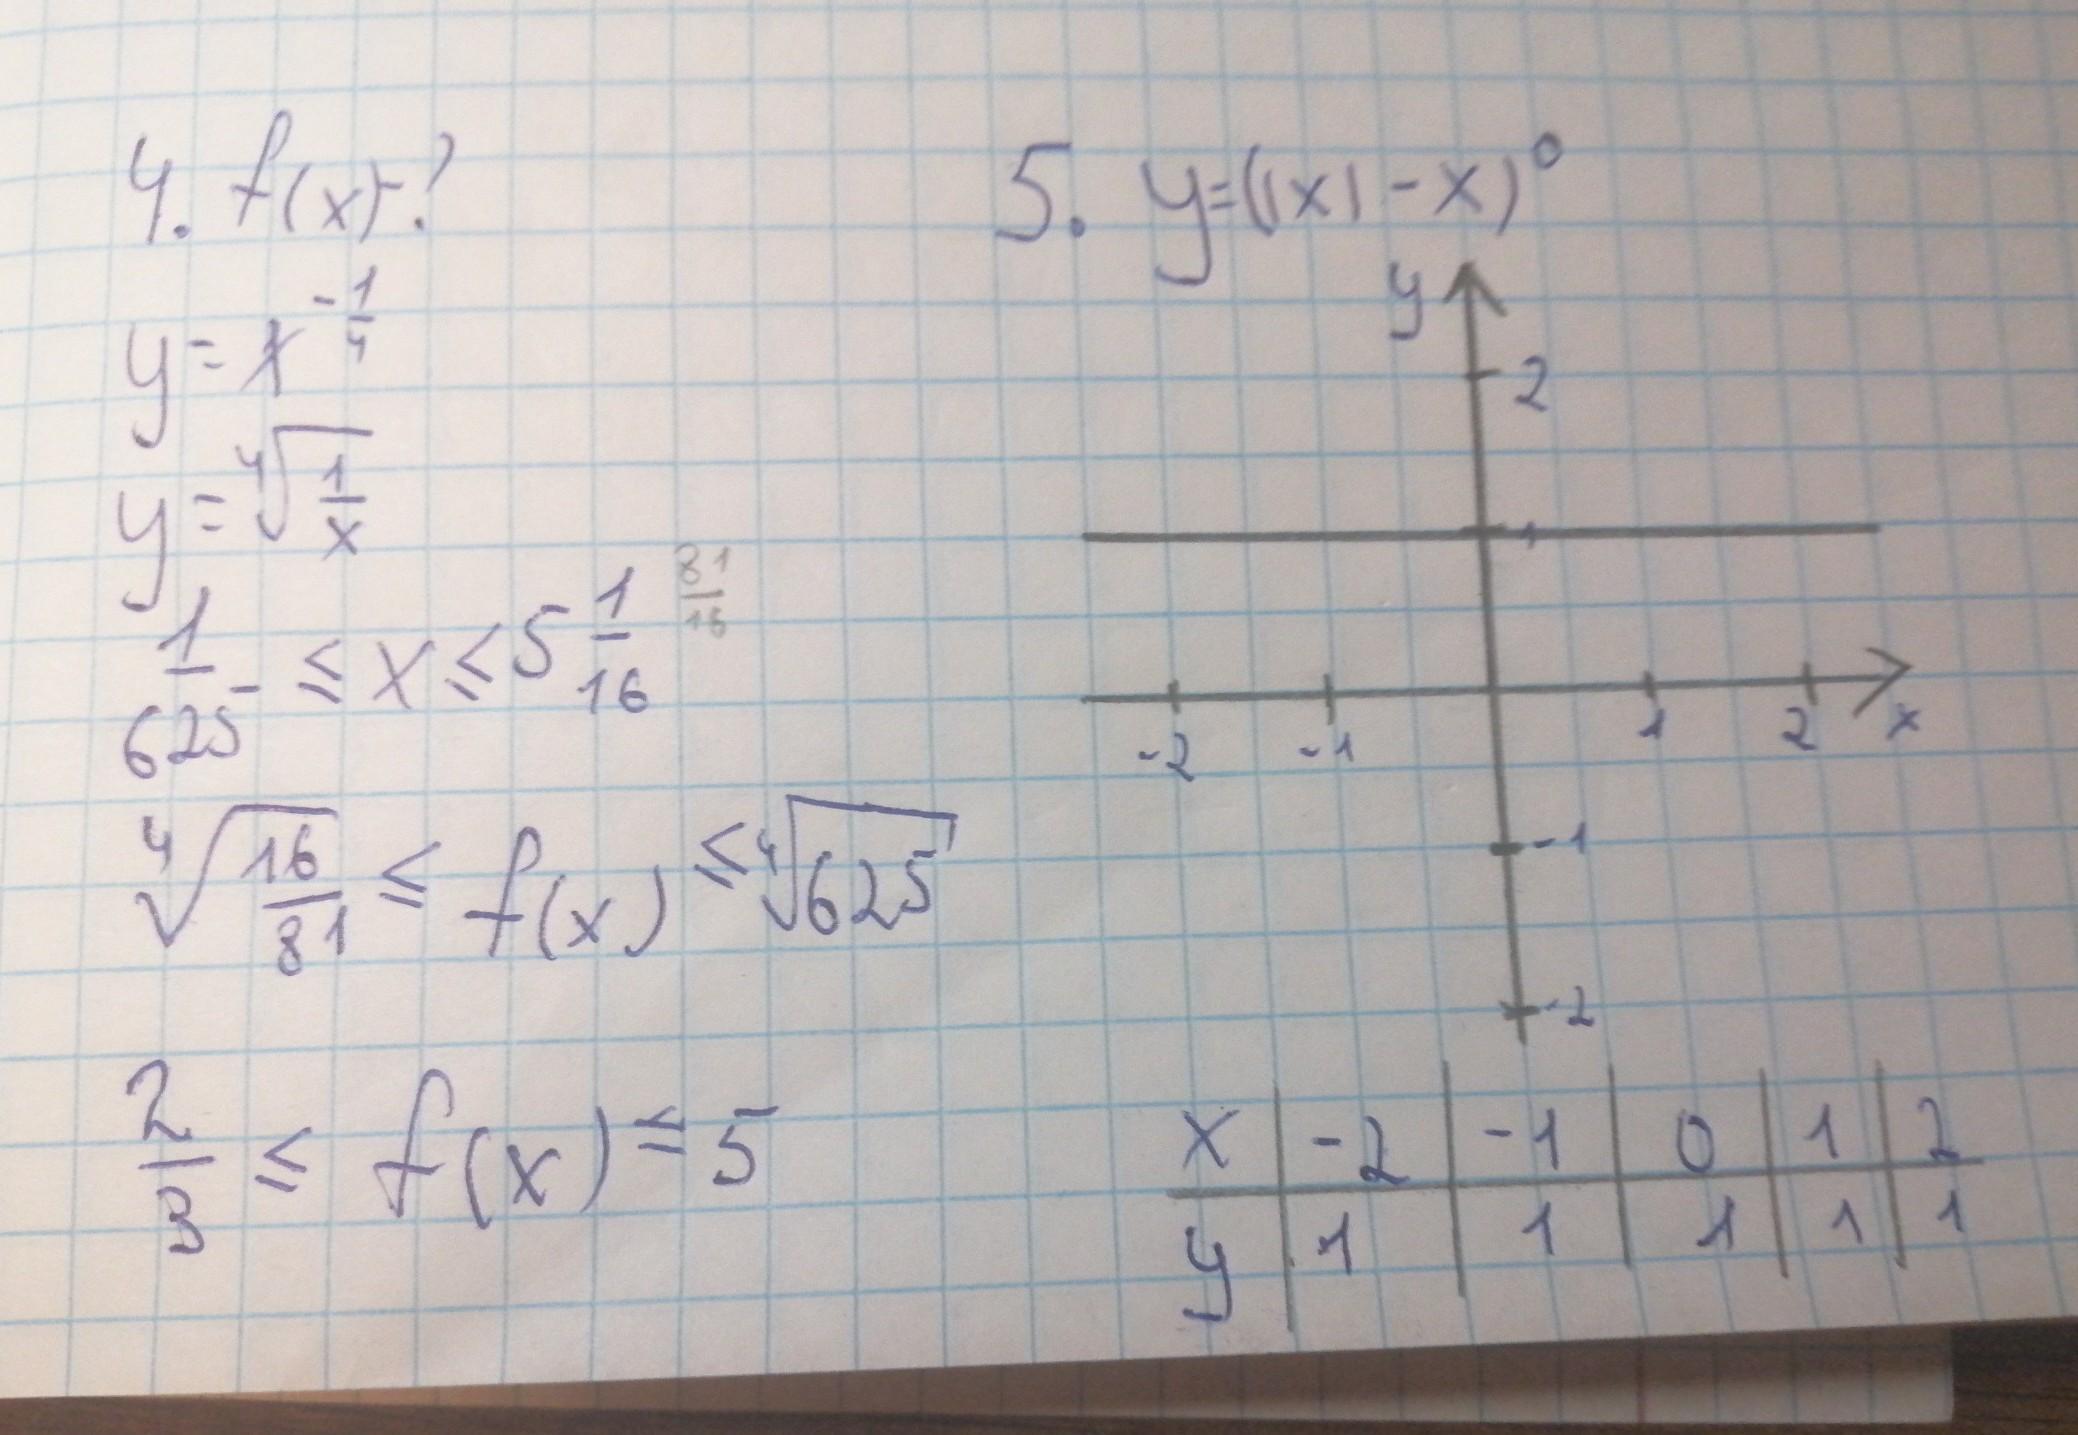 4. f(x)-?
y = x^{-1/4}
y = ⁴√(1/x)
1/625 ≤ x ≤ 5 1/16 81/16
⁴√(16/81) ≤ f(x) ≤ ⁴√625
2/3 ≤ f(x) ≤ 5
5. y=(|x|-x)⁰
y
2
1
-2 -1 1 2 x
-1
-2
x | -2 | -1 | 0 | 1 | 2
y | 1 | 1 | 1 | 1 | 1